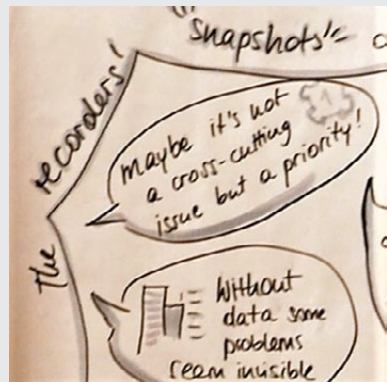 the recorders'
snapshots'
maybe it's not
a cross-cutting
issue but a priority!
Without
data some
problems
seam invisible